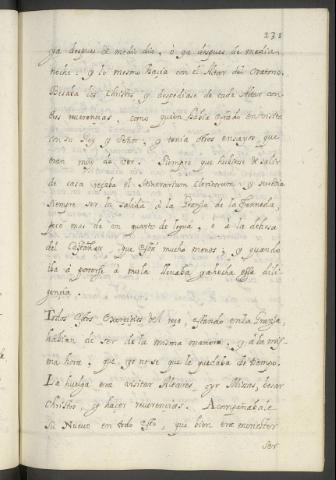 231
ya despues de medio dia, o ya despues de media
noche: y lo mesmo hacia con el Altar del Oratorio.
Besaba los Christos, y despediase de cada Altar con
tres reverencias, como quien habia estado en visita
con su Rey, y Señor, y tenia otros ensayos que
eran muy de ver. Siempre que hubiese de salir
de casa reçaba el Itinerarium Clericorum, y sucedia
siempre ser la salida à la Granja de la
poco mas de un quarto de legua, o à la dehesa
del Castañar que està mucho menos; y quando
iba à ponerse à mula llevaba ya hecha esta dili-
gencia.
Todos estos Exercicios del rezo, estando en la Granja,
habian de ser de la misma manera, y à la mis-
ma hora, que yo no se que le quedaba de tiempo.
La huelga era visitar Altares, oyr Missas, besar
Christos, y hacer reverencias. Acompañabale
su Nuevo en todo esto, que bien era menester
ser